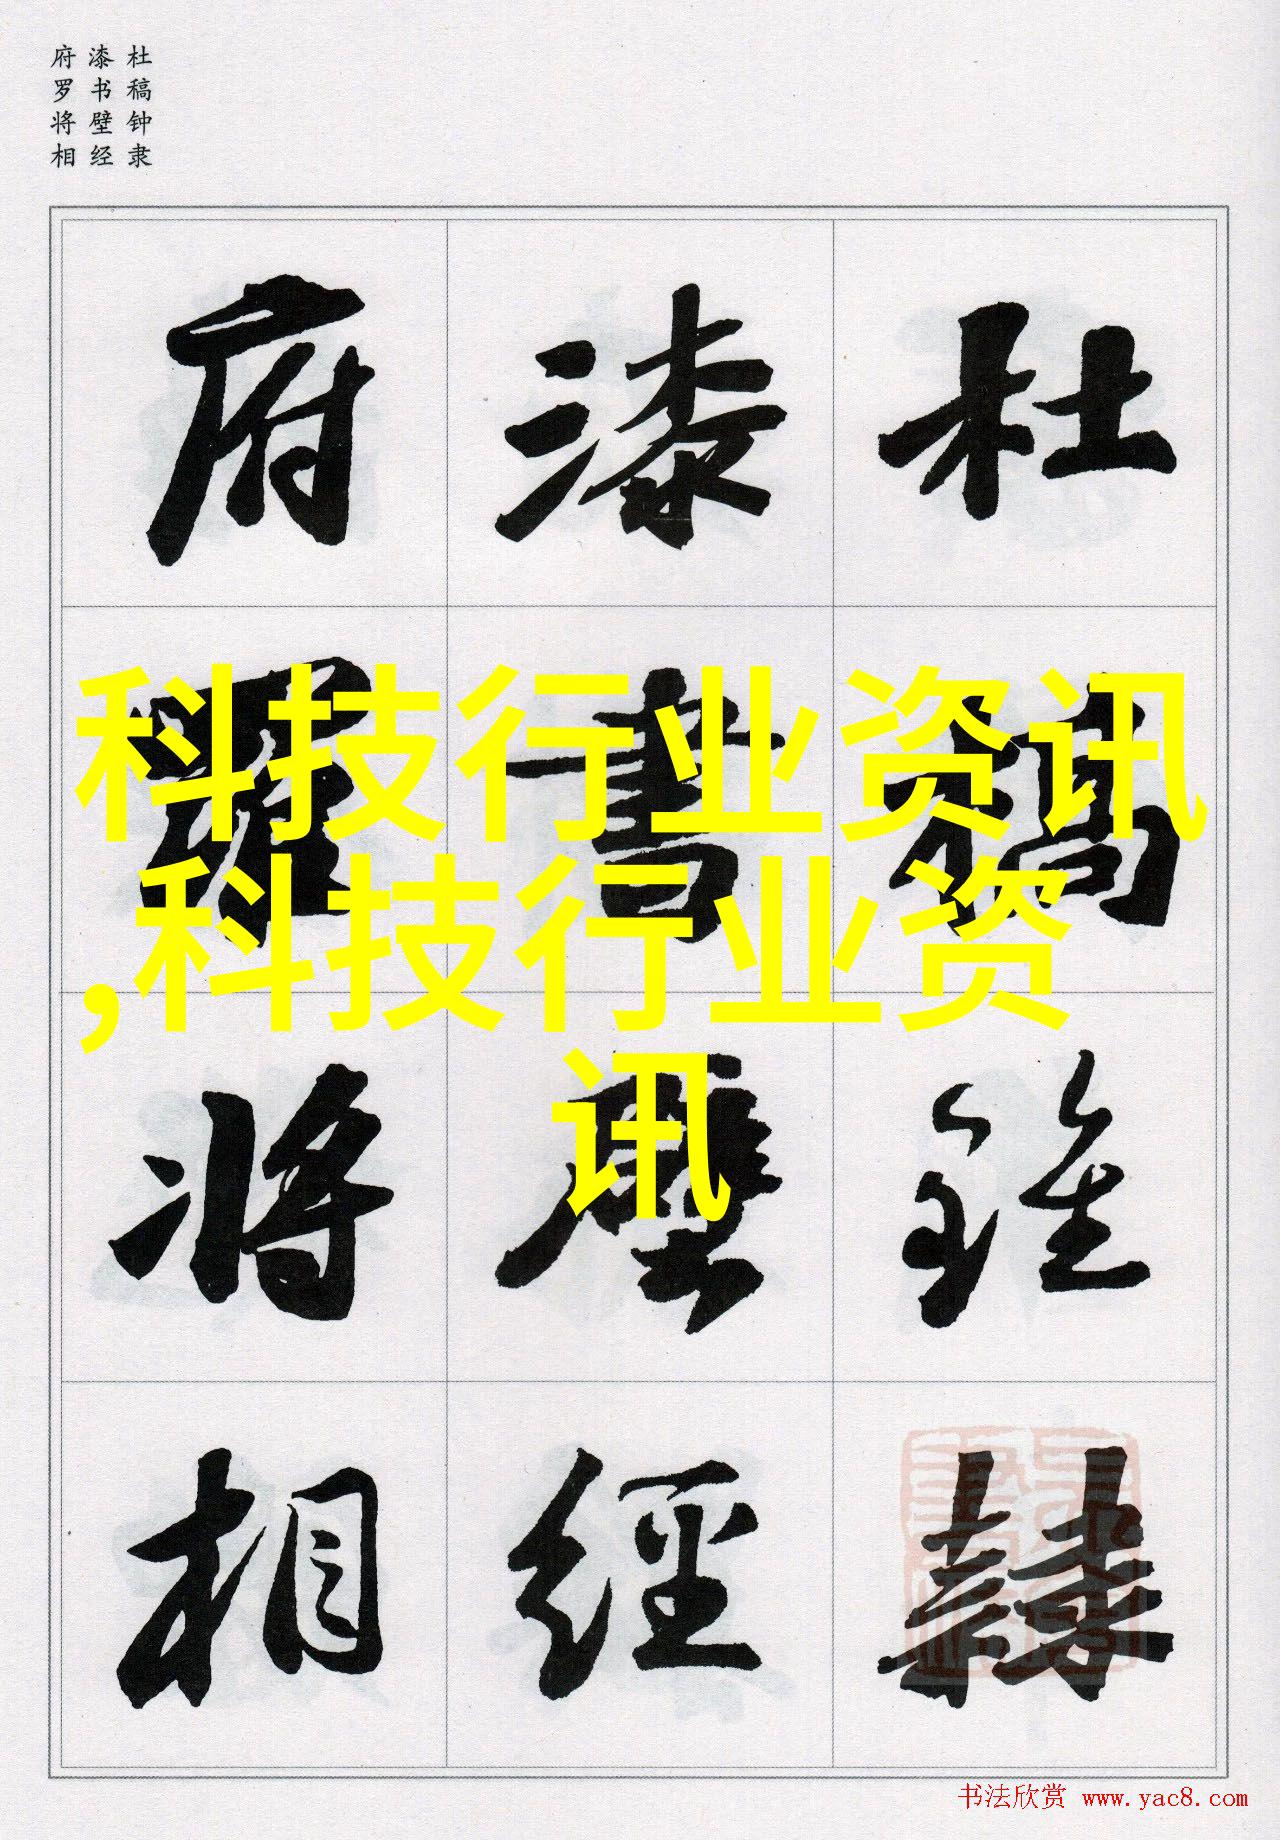 杜稿钟隶
漆书壁经
府罗将相
杜稿鍾隸
漆書壁經
府羅將相
科技行业资讯
,科技行业资
讯
书法欣赏 www.yac8.com